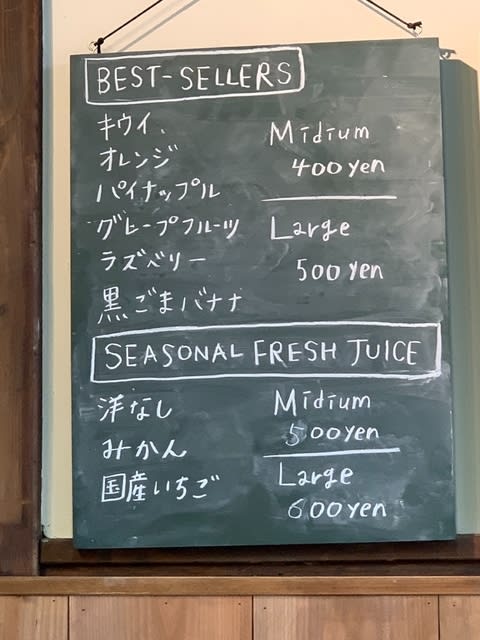 BEST-SELLERS
キウイ、
オレンジ
パイナップル
グレープフルーツ
ラズベリー
黒ごまバナナ
Midium
400yen
Large
500yen
SEASONAL FRESH JUICE
洋なし
みかん
国産いちご
Midium
500yen
Large
600yen